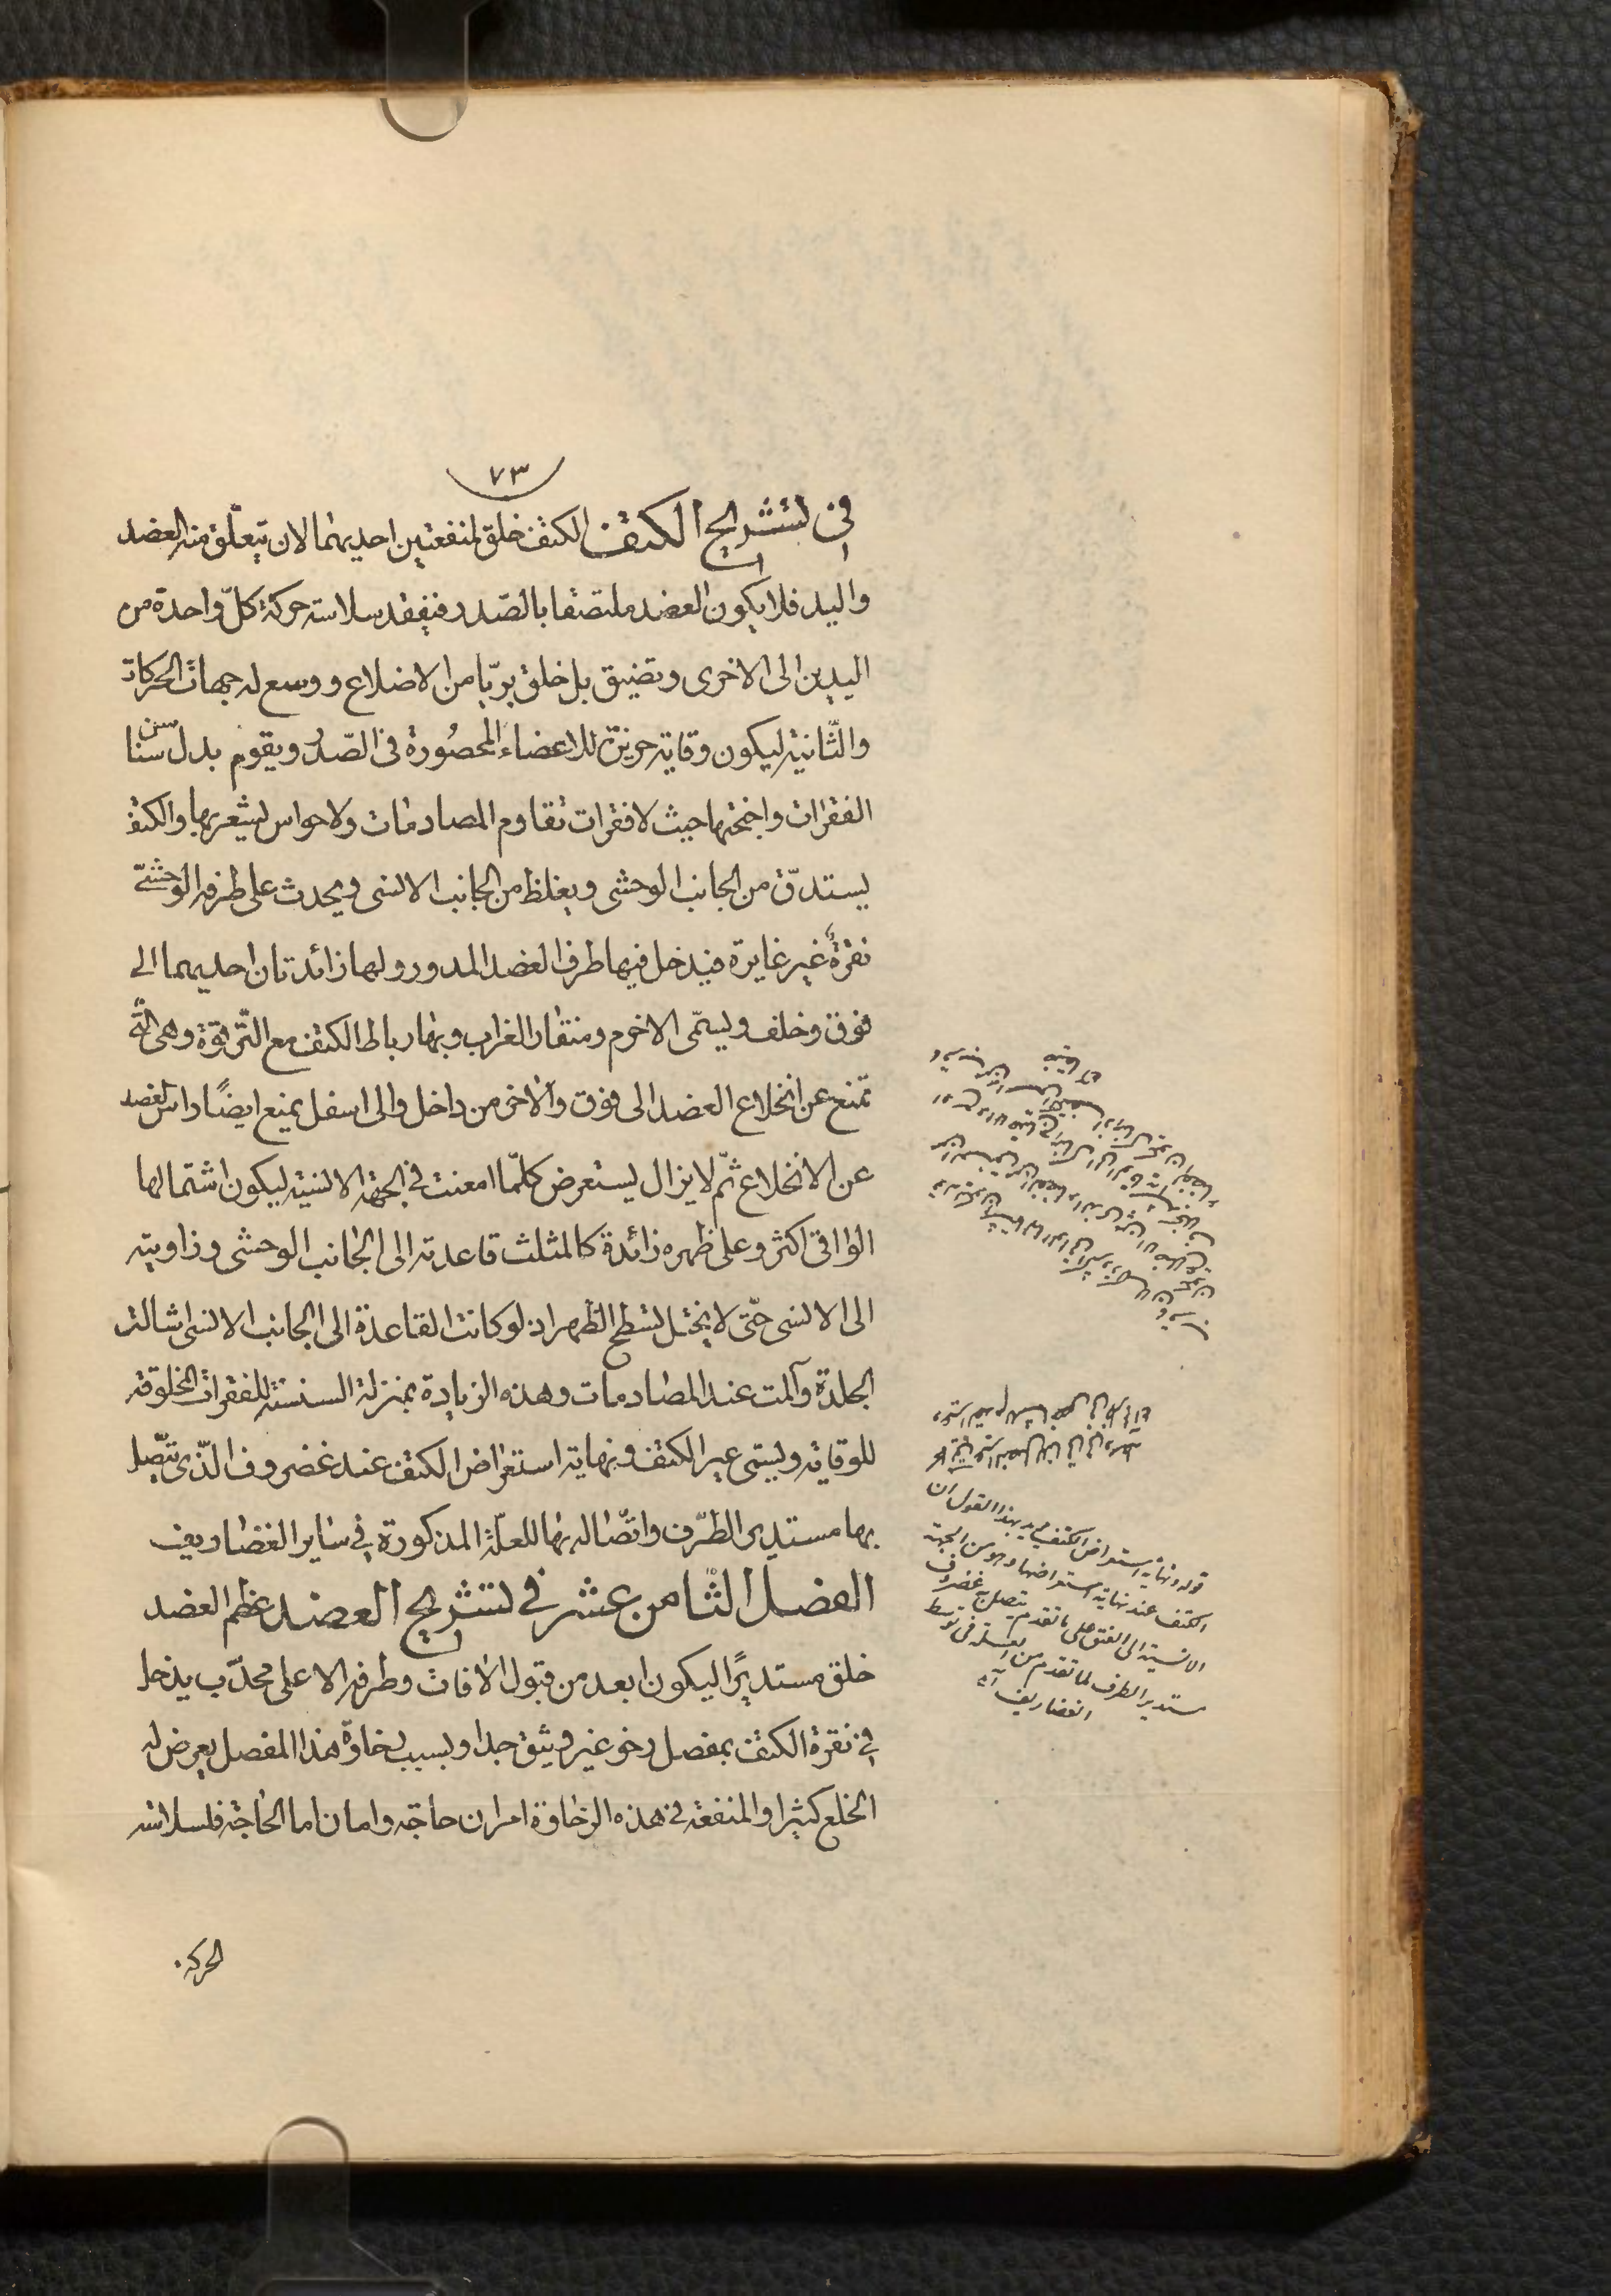 ٧٣
فى تشريح الكتف الكتف خلق لمنفعتين احديهما لان يتعلق منه العضد
واليد فلا يكون العضد ملتصقا بالصّدر فيفقد سلاسة حركة كلّ واحدة من
اليدين الى الاخرى وتضيق بل خلق بريّا من الاضلاع ووسع له جهات الحركات
والثّانية ليكون وقاية حريزة للاعضاء المحصُورة فى الصّدر ويقوم بدل سنا سن
الفقرات واجنحتها حيث لا فقرات تقاوم المصادمات ولا حواس ليشعر بها والكتف
يستدقّ من الجانب الوحشى ويغلظ من الجانب الانسى ويحدث على طرفه الوحشىّ
نقرةٌ غير غايرة فيدخل فيها طرف العضد المدور ولها زائدتان احديهما الى
فوق وخلف ويسمّى الاخرم ومنقار الغراب وبها رباط الكتف مع التّرقوة وهى الّتى
تمنع عن انخلاع العضد الى فوق والاخر من داخل والى اسفل يمنع ايضًا راس العضد
عن الانخلاع ثمّ لا يزال يستعرض كلّما امعنت فى الجهة الانسية ليكون اشتمالها
الواقى اكثر وعلى ظهره زائدة كالمثلث قاعدته الى الجانب الوحشى وزاويته
الى الانسى حتّى لا يختل تسطح الظهر اذ لو كانت القاعدة الى الجانب الانسى اشالت
الجلدة وآلمت عند المصادمات وهذه الزيادة بمنزلة السنسنة للفقرات المخلوقة
للوقاية ويسمّى عير الكتف ونهاية استعراض الكتف عند غضروف الّذى تتّصل
بها مستدير الطّرف واتّصاله بها للعلّة المذكورة فى ساير الغضاريف
الفصل الثامن عشر فى تشريح العضد عظم العضد
خلق مستديرًا ليكون ابعد من قبول الافات وطرفه الاعلى محدّب يدخل
فى نقرة الكتف بمفصل رخو غير وثيق جدا وبسبب رخاوة هذا المفصل يعرض له
الخلع كثيرا والمنفعة فى هذه الرخاوة امران حاجة وامان اما الحاجة فلسلاسة
الحركة
قوله ونهاية استعراض الكتف يريد بهذا القول ان
الكتف عند نهاية استعراضها وهو من الجهة
الانسية الى الفتق على ما تقدم يتصل به غضروف
مستدير الطرف لما تقدم من العلة فى توسط
الغضاريف